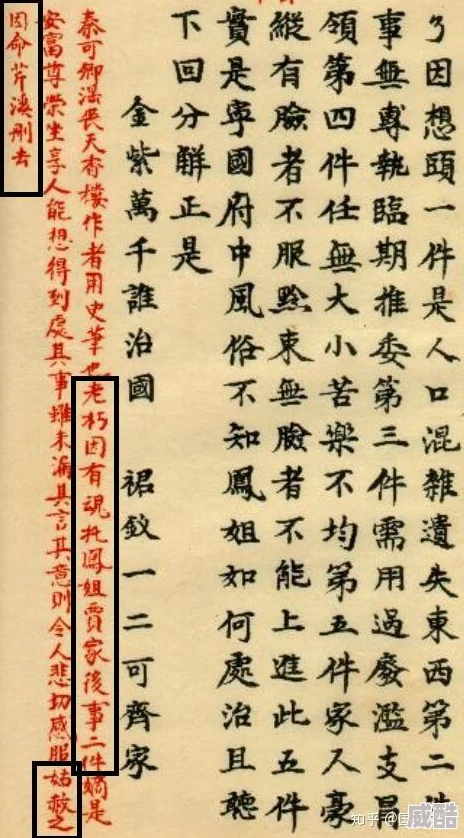 了因想頭一件是人口混雜遺失東西第二件
事無專執臨期推委第三件需用過廢濫支冒
領第四件任無大小苦樂不均第五件家人豪
縱有臉者不服黔束無臉者不能上進此五件
實是寧國府中風俗不知鳳姐如何處治且聽
下回分解正是
金紫萬千誰治國 裙釵一二可齊家
秦可卿淫喪天香樓作者用史筆也老朽因有魂托鳳姐賈家後事二件嫡是
安富尊榮坐享人能想得到處其事雖未漏其言其意則令人悲切感服姑赦之
因命芹溪刪去
知乎 @国
威酷